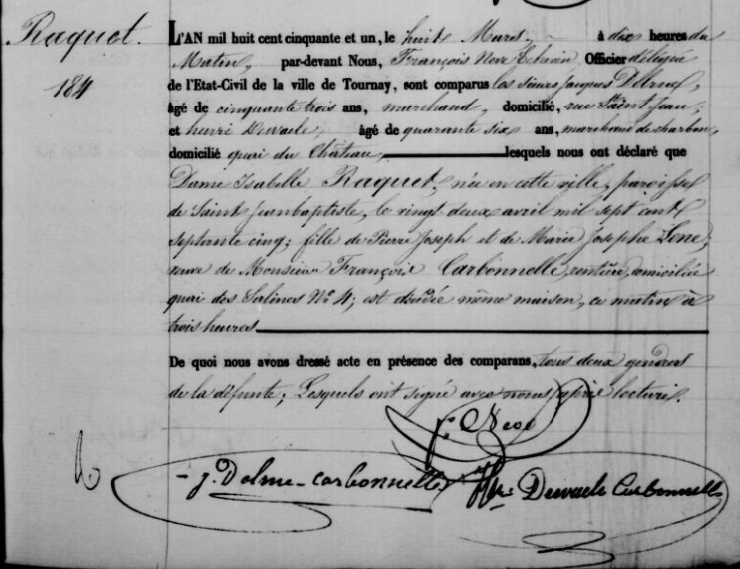 Raquet.
184
L'AN mil huit cent cinquante et un, le huit Mars, à dix heures du
Matin, par-devant Nous, François Nève Echevin Officier délégué
de l'Etat-Civil de la ville de Tournay, sont comparus les sieurs Jacques
âgé de cinquante trois ans, marchand, domicilié, rue Saint Jean,
et henri Dewaele, âgé de quarante six ans, marchand de charbon,
domicilié quai du Château, lesquels nous ont déclaré que
Dame Isabelle Raquet, née en cette ville, paroisse
de Saint Jean baptiste, le vingt deux avril mil sept cent
septante cinq; fille de Pierre Joseph et de Marie Josephe
veuve de Monsieur François Carbonnelle, rentière, domiciliée
quai des Salines N° 4; est décédée même maison, ce matin à
trois heures
De quoi nous avons dressé acte en présence des comparans, tous deux gendres
de la défunte; Lesquels ont signé avec nous après lecture.
f. Nève
j. Delme-Carbonnelle hri Dewaele Carbonnelle